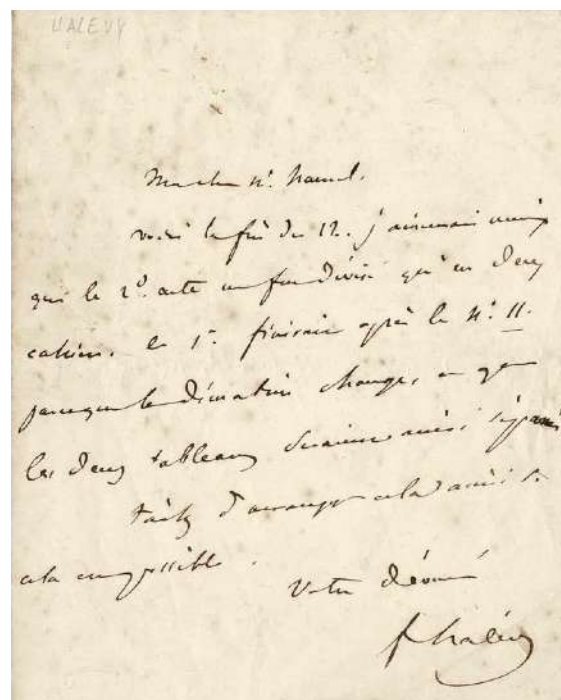 HALEVY
Mon cher Mr.
voici la fin du 12. j'aimerais mieux
que le 2d. acte ne fut divisé qu'en deux
cahiers. le 1er. finirait après le No. 11.
parceque la décoration change, et que
les deux tableaux seraient ainsi séparés
tâchez d'arranger cela ainsi si
cela est possible.
Votre dévoué
F Halévy